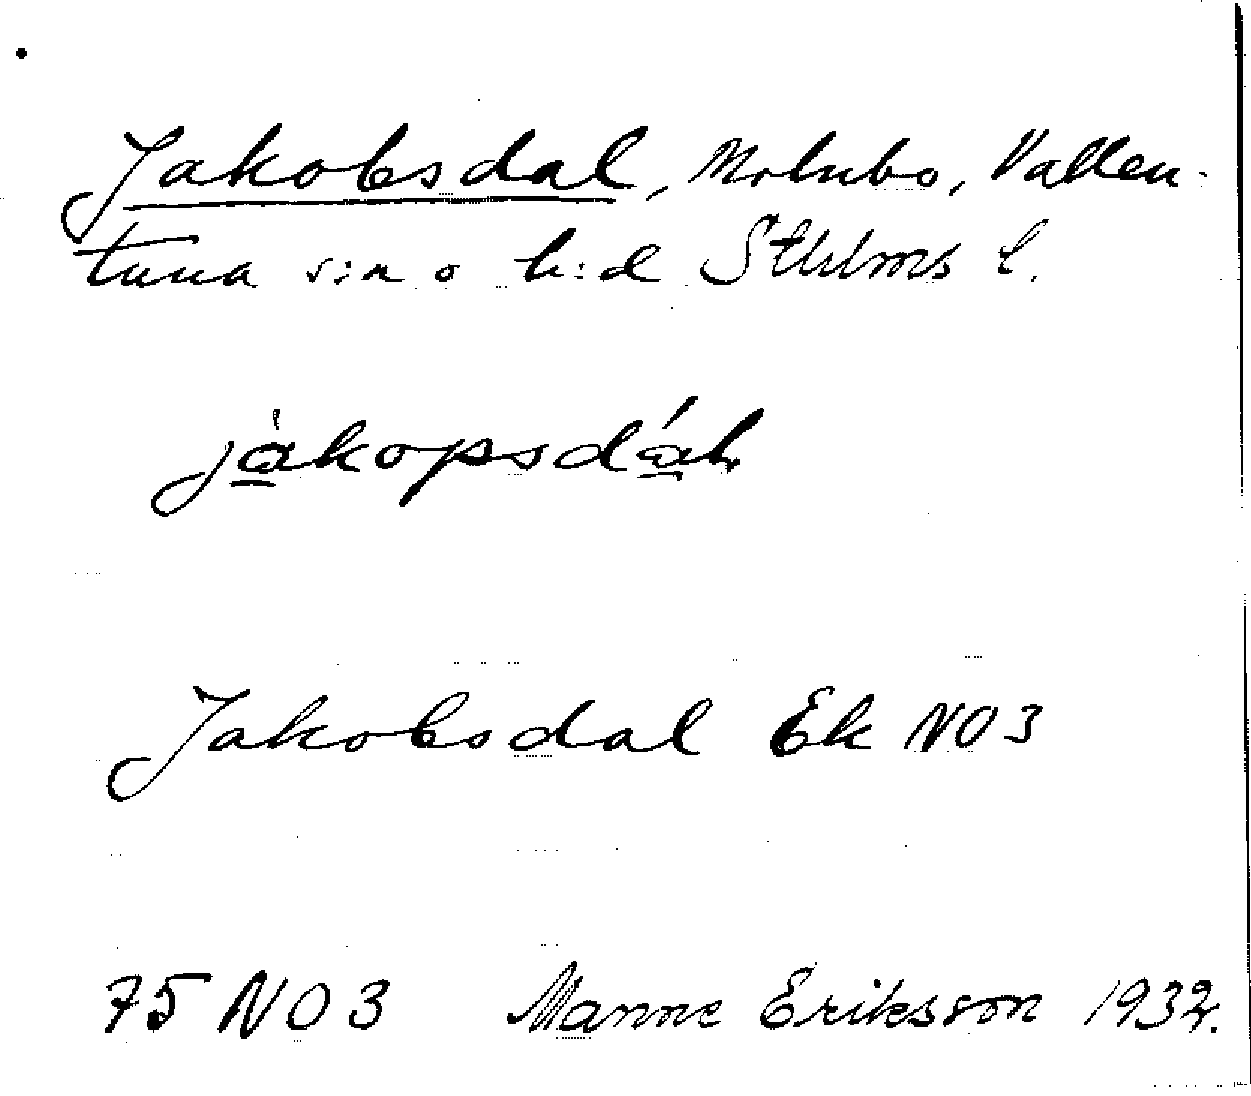 Jakobsdal, Molnbo, Vallen-
tuna s:n o h:d Sthlms l.
jàkopsdál
Jakobsdal Ek NO3
75 NO 3 Manne Eriksson 1932.